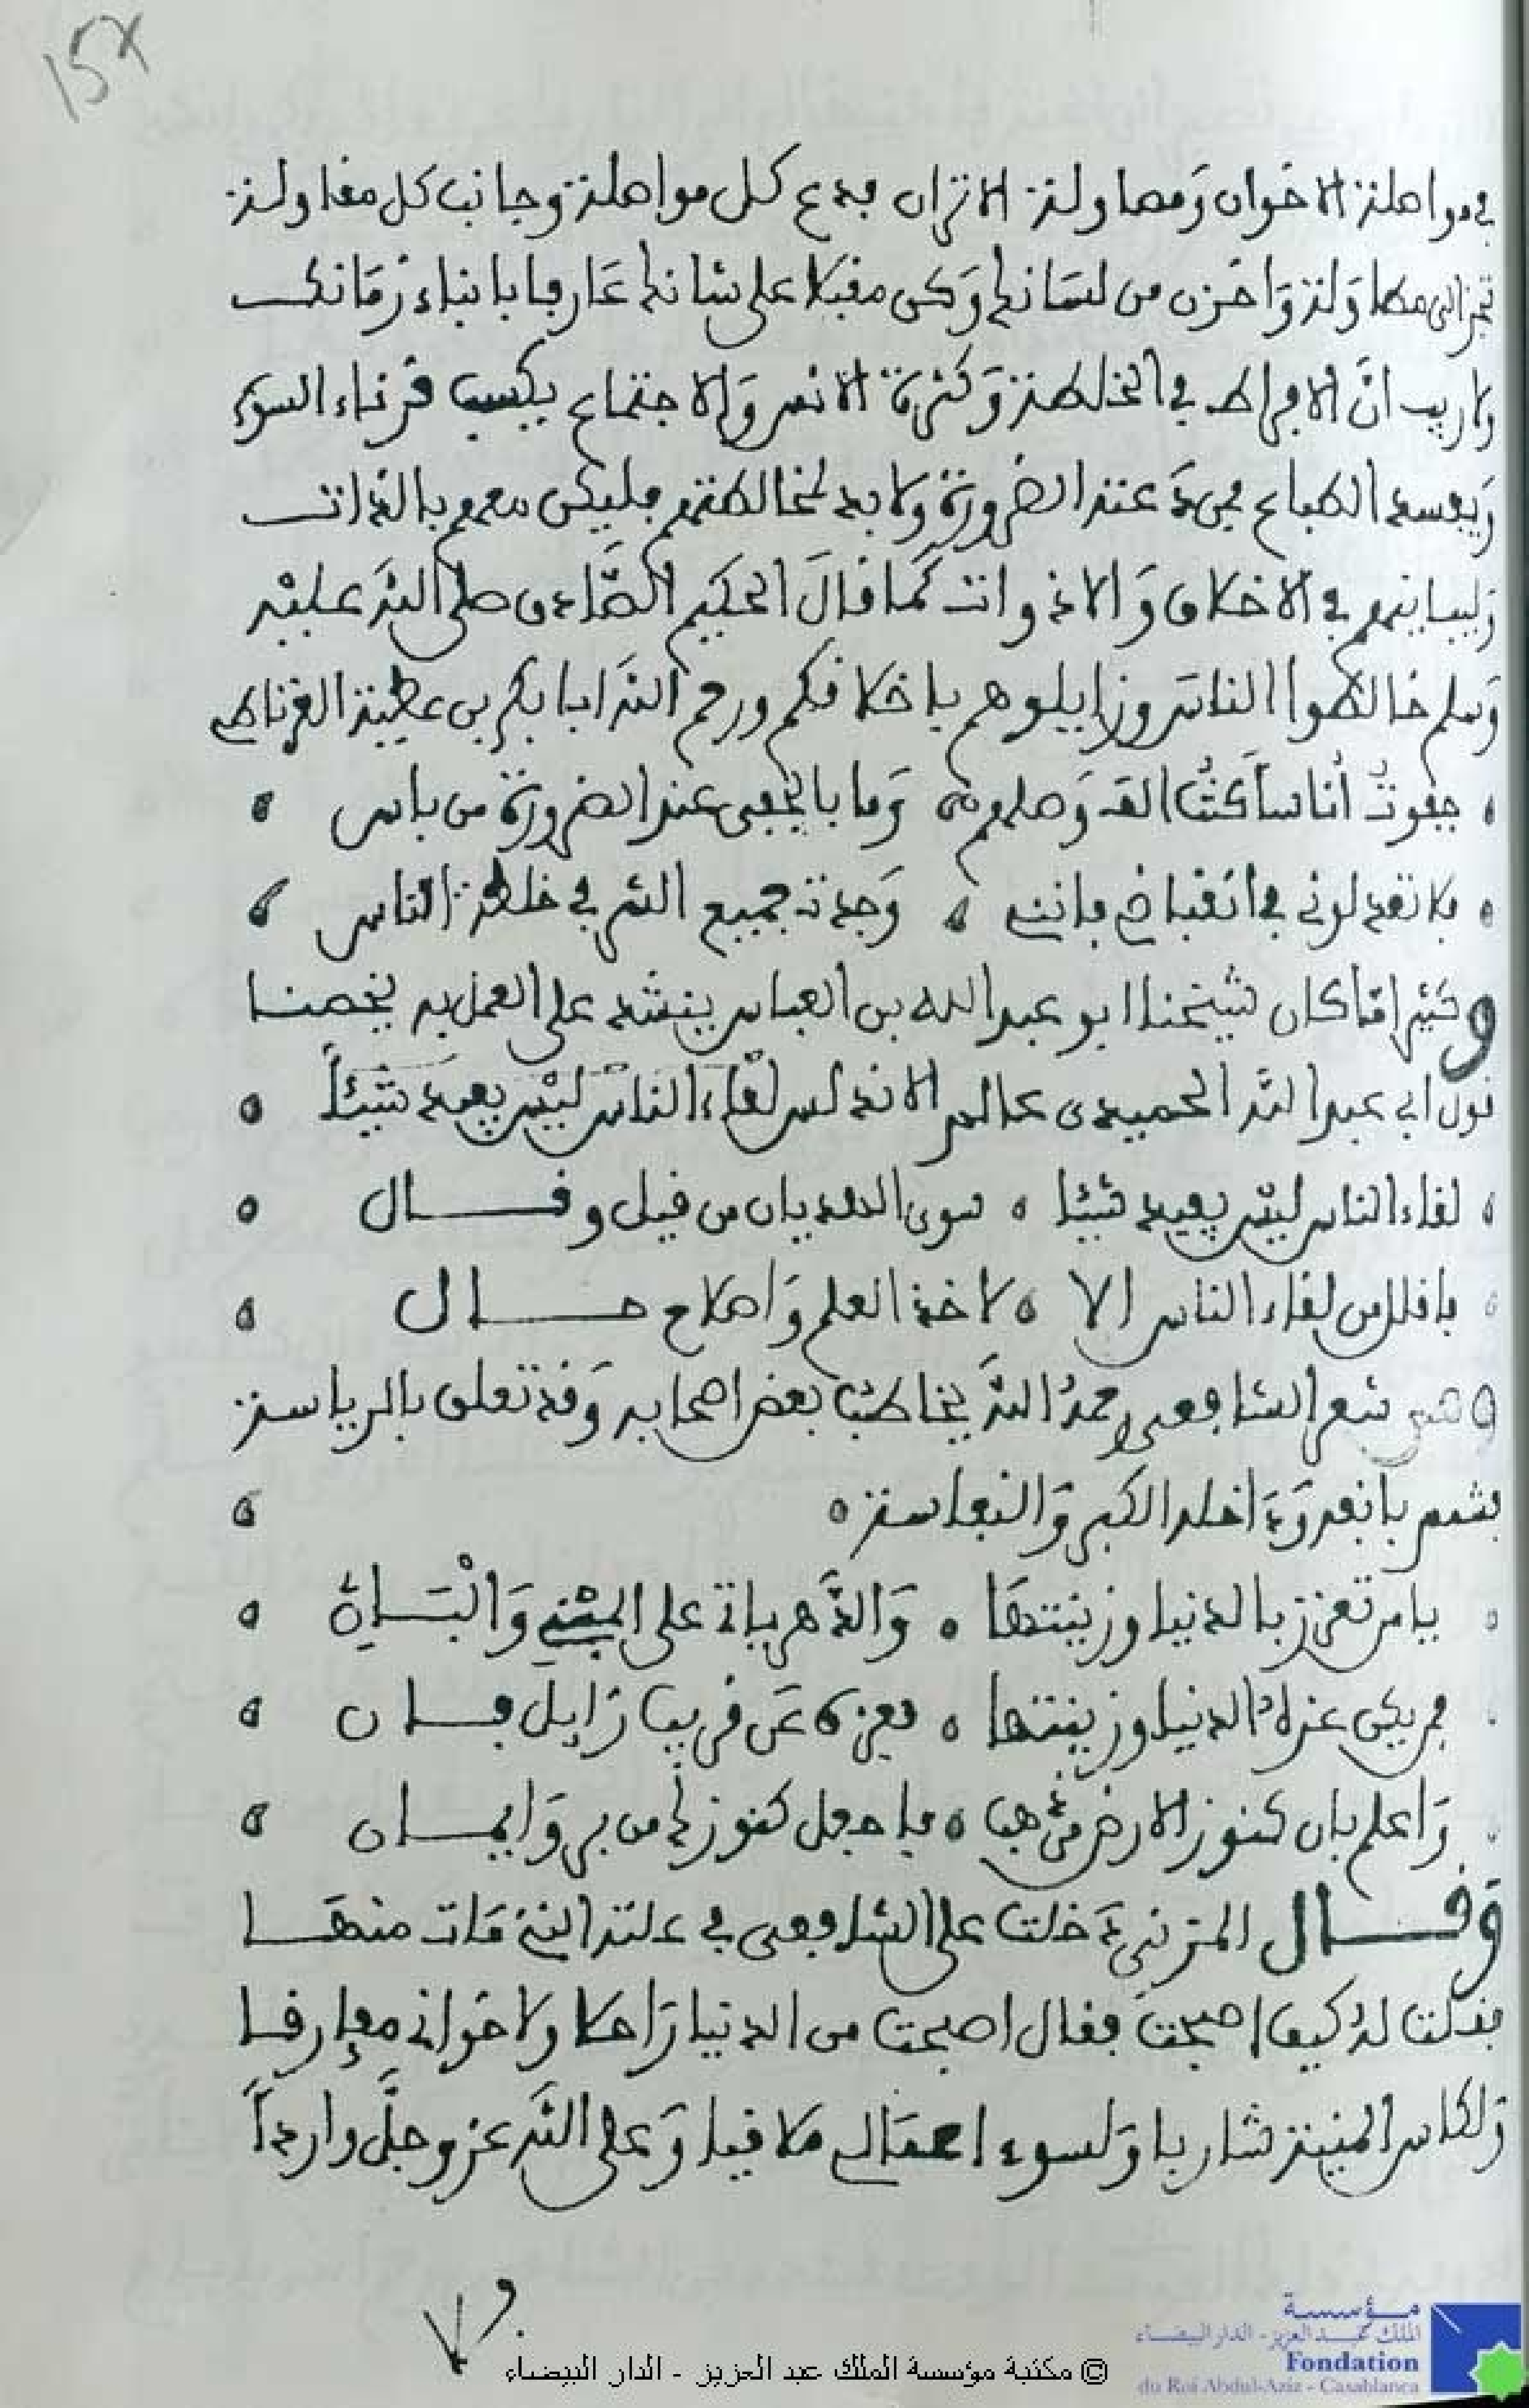 157
في مواصلة الاخوان وَمصاولة الاتراب فدع كل مواصلة وجانب كل مقاولة
تجر الى مطاوَلة وَاخزن من لسَانك وَكن مقبلا على شانك عَارفا بابناء زمَانك
ولا ريب انَّ الافراط في الخلطة وَكثرة الانس وَالاجتماع يكسب قرناء السوء
وَيفسد الطباع فمن دَعته الضرورة ولا بد لمخالطتهم فليكن معهم بالذات
وَليباينهم في الاخلاق وَالادوات كَما قالَ الحكَيم الصَّادق صلى اللهَ عليْه
وَسلم خالطوا الناس وزايلوهم باخلاقكم ورحم اللهَ ابا بكر بن عطية الغرناطي
جفوتُ أناسا كنتُ الف وَصلهم وَما بالجفى عند الضرورة من باس
فلا تعذلوني في انقباضي فانني وَجدت جميع الشر في خلطة الناس
وكثيرا مَا كان شيخنا ابو عبد الله بن العباس ينشد على العمل به يخصنا
قول ابي عبد الله الحميدى عالم الاندلس لقاء الناس ليْس يفيد شيْئاً
لقاء الناس ليْس يفيد شيئا سوى الهذيان من قيل وقال
فاقلل من لقاء الناس الا لاخذ العلم وَاصلاح حال
ومن شعر الشافعي رحمهُ اللهَ يخاطب بعض اصحابه وَقد تعلق بالرياسة
فشمم بانفه وَدَاخله الكبر وَالنفاسة
يا من تعزز بالدنيا وزينتهَا وَالدَّهر ياتي على المبْني وَالْبَاني
من يكن عزه الدنيا وزينتها فعزه عَن قريب زَايل فان
وَاعلم بان كنوز الارض من ذهب فاجعل كنوزك من بر وَايمان
وَقال المزني دَخلت على الشافعي في علته التي مَات منهَا
فقلت لهُ كيف اصبحتَ فقال اصبحت من الدنيا رَاحلا ولاخوَاني مفارقا
وَلكاس المنية شاربا وَلسوء اعمَالي ملاقيا وَعلى اللهَ عز وجلَّ وارداً
© مكتبة مؤسسة الملك عبد العزيز - الدار البيضاء
مؤسسة
الملك عبد العزيز - الدار البيضاء
Fondation
du Roi Abdul-Aziz - Casablanca